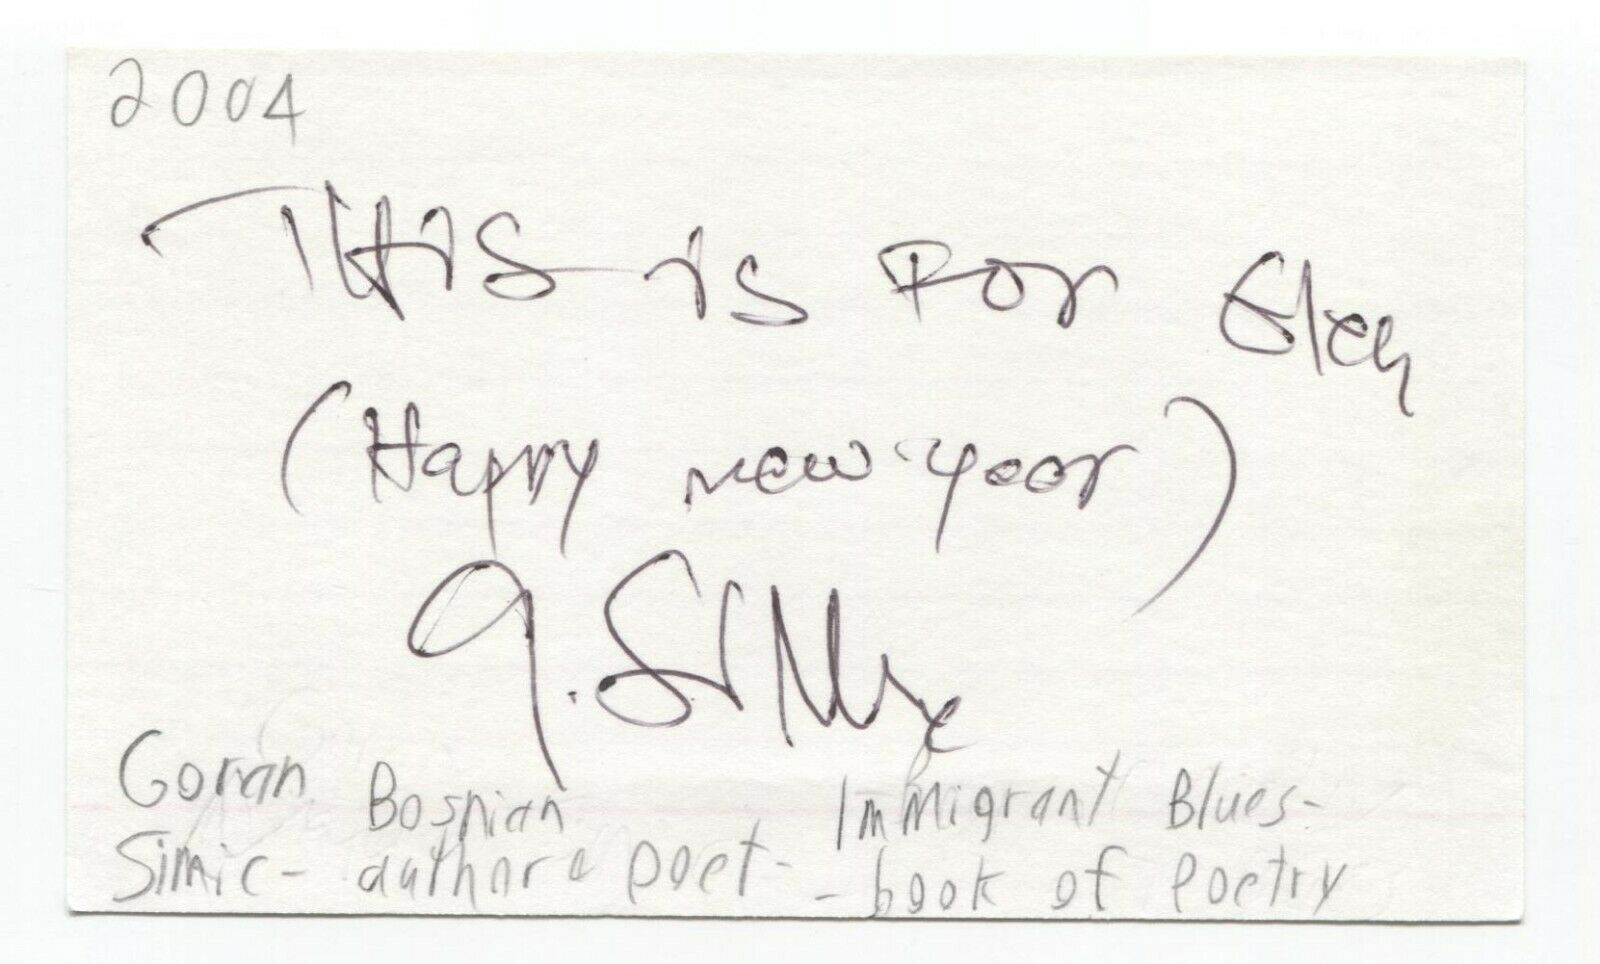 2004
THIS is FOR
(Happy new year)
G. SIMIC
Goran Bosnian Immigrant Blues-
Simic - author & poet - - book of Poetry